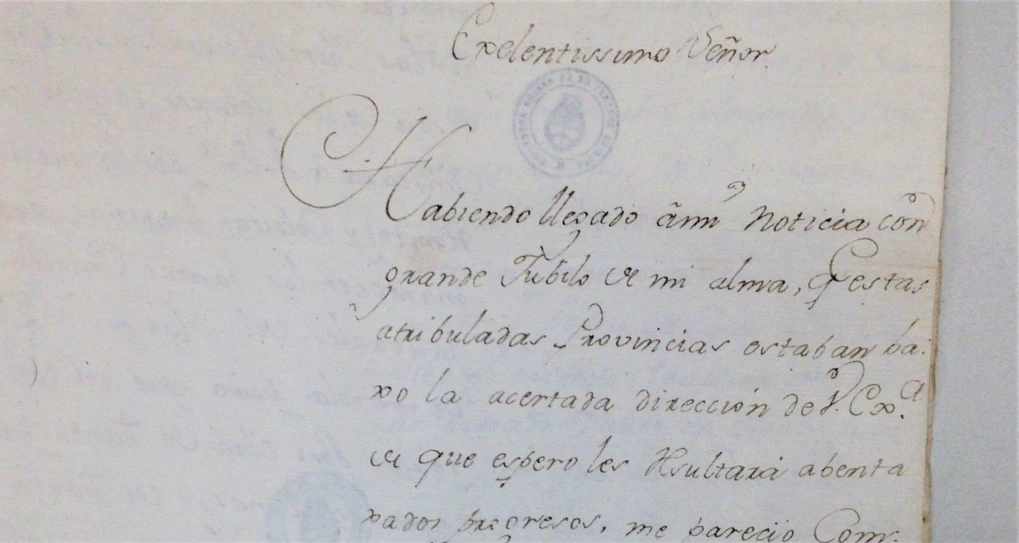 Exelentissimo Señor
Habiendo llegado âmi noticia con
grande Jubilo de mi alma, q estas
atribuladas Provincias estaban ba-
xo la acertada dirección de V. Exa.
de que espero les Resultará abenta
xados progresos, me parecio Com-